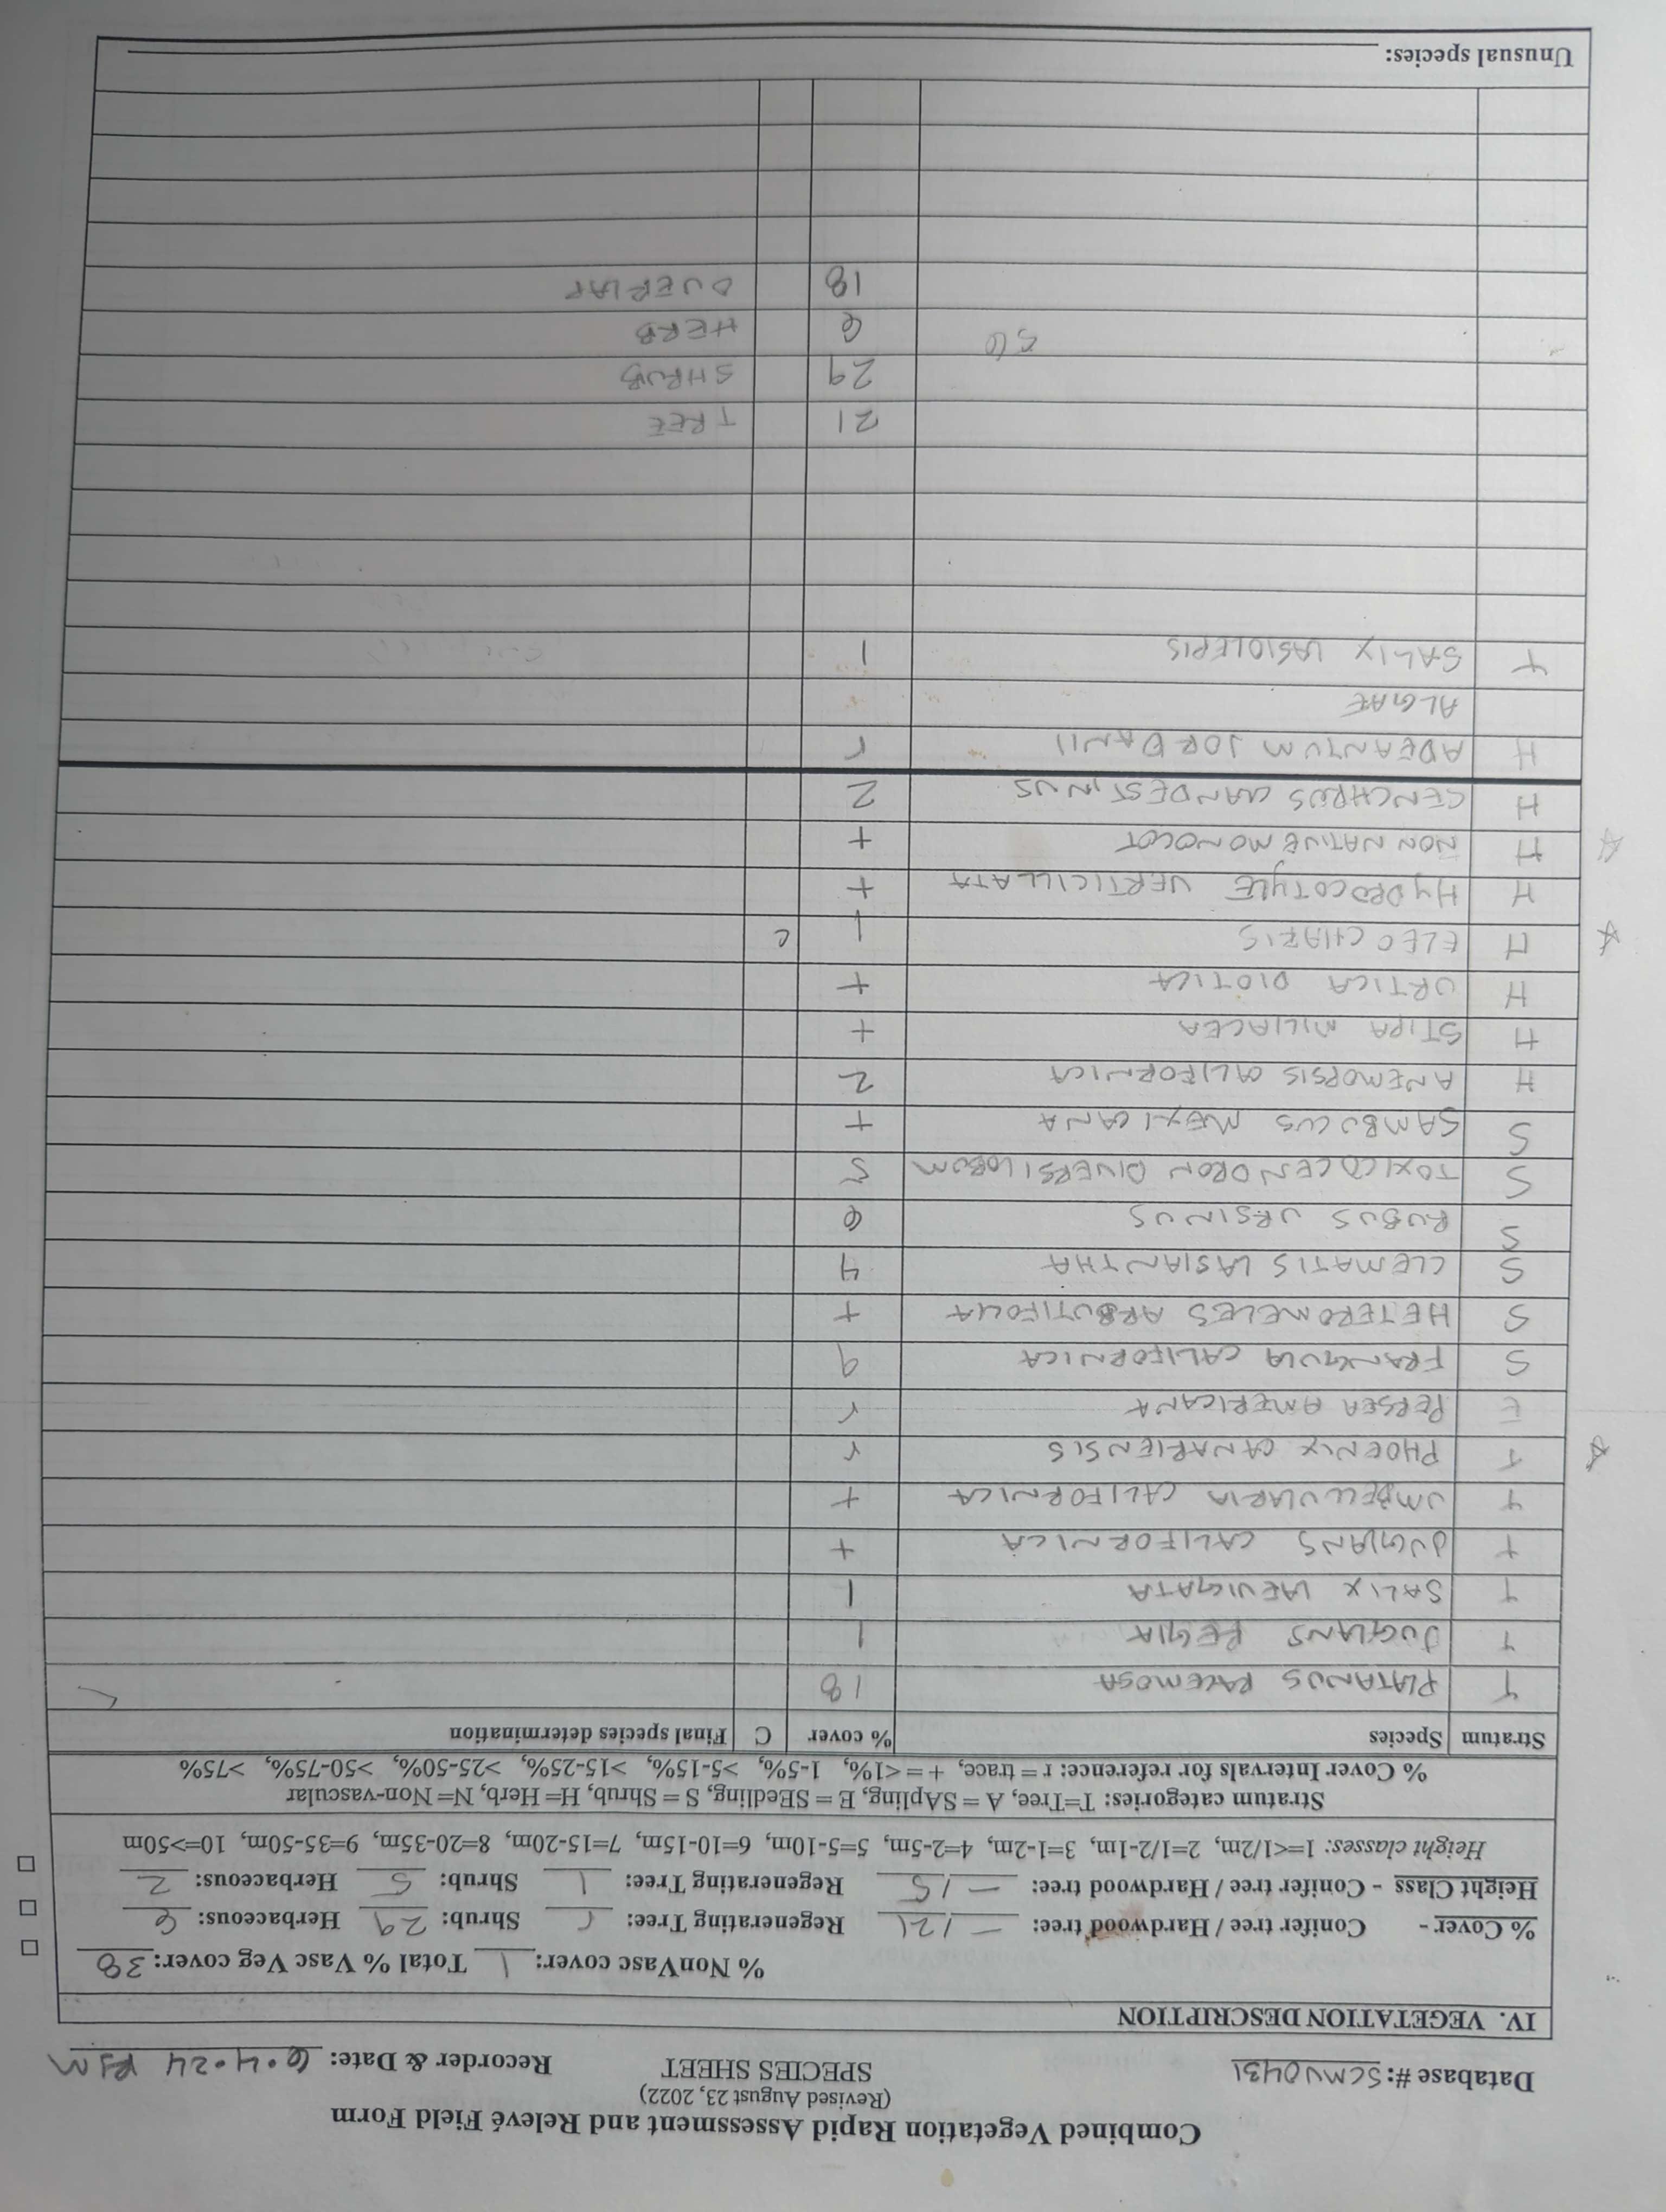 Combined Vegetation Rapid Assessment and Relevé Field Form
(Revised August 23, 2022)
Database #: SCMV0431 SPECIES SHEET Recorder & Date: 6.4.24 RJM
IV. VEGETATION DESCRIPTION
% NonVasc cover: 1 Total % Vasc Veg cover: 38
% Cover - Conifer tree / Hardwood tree: — / 21 Regenerating Tree: r Shrub: 29 Herbaceous: 6
Height Class - Conifer tree / Hardwood tree: — / 5 Regenerating Tree: 1 Shrub: 5 Herbaceous: 2
Height classes: 1=<1/2m, 2=1/2-1m, 3=1-2m, 4=2-5m, 5=5-10m, 6=10-15m, 7=15-20m, 8=20-35m, 9=35-50m, 10=>50m
Stratum categories: T=Tree, A = SApling, E = SEedling, S = Shrub, H= Herb, N= Non-vascular
% Cover Intervals for reference: r = trace, + = <1%, 1-5%, >5-15%, >15-25%, >25-50%, >50-75%, >75%
Stratum Species % cover C Final species determination
T PLATANUS RACEMOSA 18
T JUGLANS REGIA 1
T SALIX LAEVIGATA 1
T JUGLANS CALIFORNICA +
T UMBELLULARIA CALIFORNICA +
☆ T PHOENIX CANARIENSIS r
E PERSEA AMERICANA r
S FRANGULA CALIFORNICA 9
S HETEROMELES ARBUTIFOLIA +
S CLEMATIS LASIANTHA 4
S RUBUS URSINUS 6
S TOXICOCENDRON DIVERSILOBUM 5
S SAMBUCUS MEXICANA +
H ANEMOPSIS CALIFORNICA 2
H STIPA MILIACEA +
H URTICA DIOTICA +
☆ H ELEOCHARIS 1 C
H HYDROCOTYLE VERTICILLATA +
☆ H NON NATIVE MONOCOT +
H CENCHRUS CLANDESTINUS 2
H ADEANTUM JORDANII r
ALGAE
T SALIX LASIOLEPIS 1
21 TREE
29 SHRUB
56 6 HERB
18 OVERLAP
Unusual species: